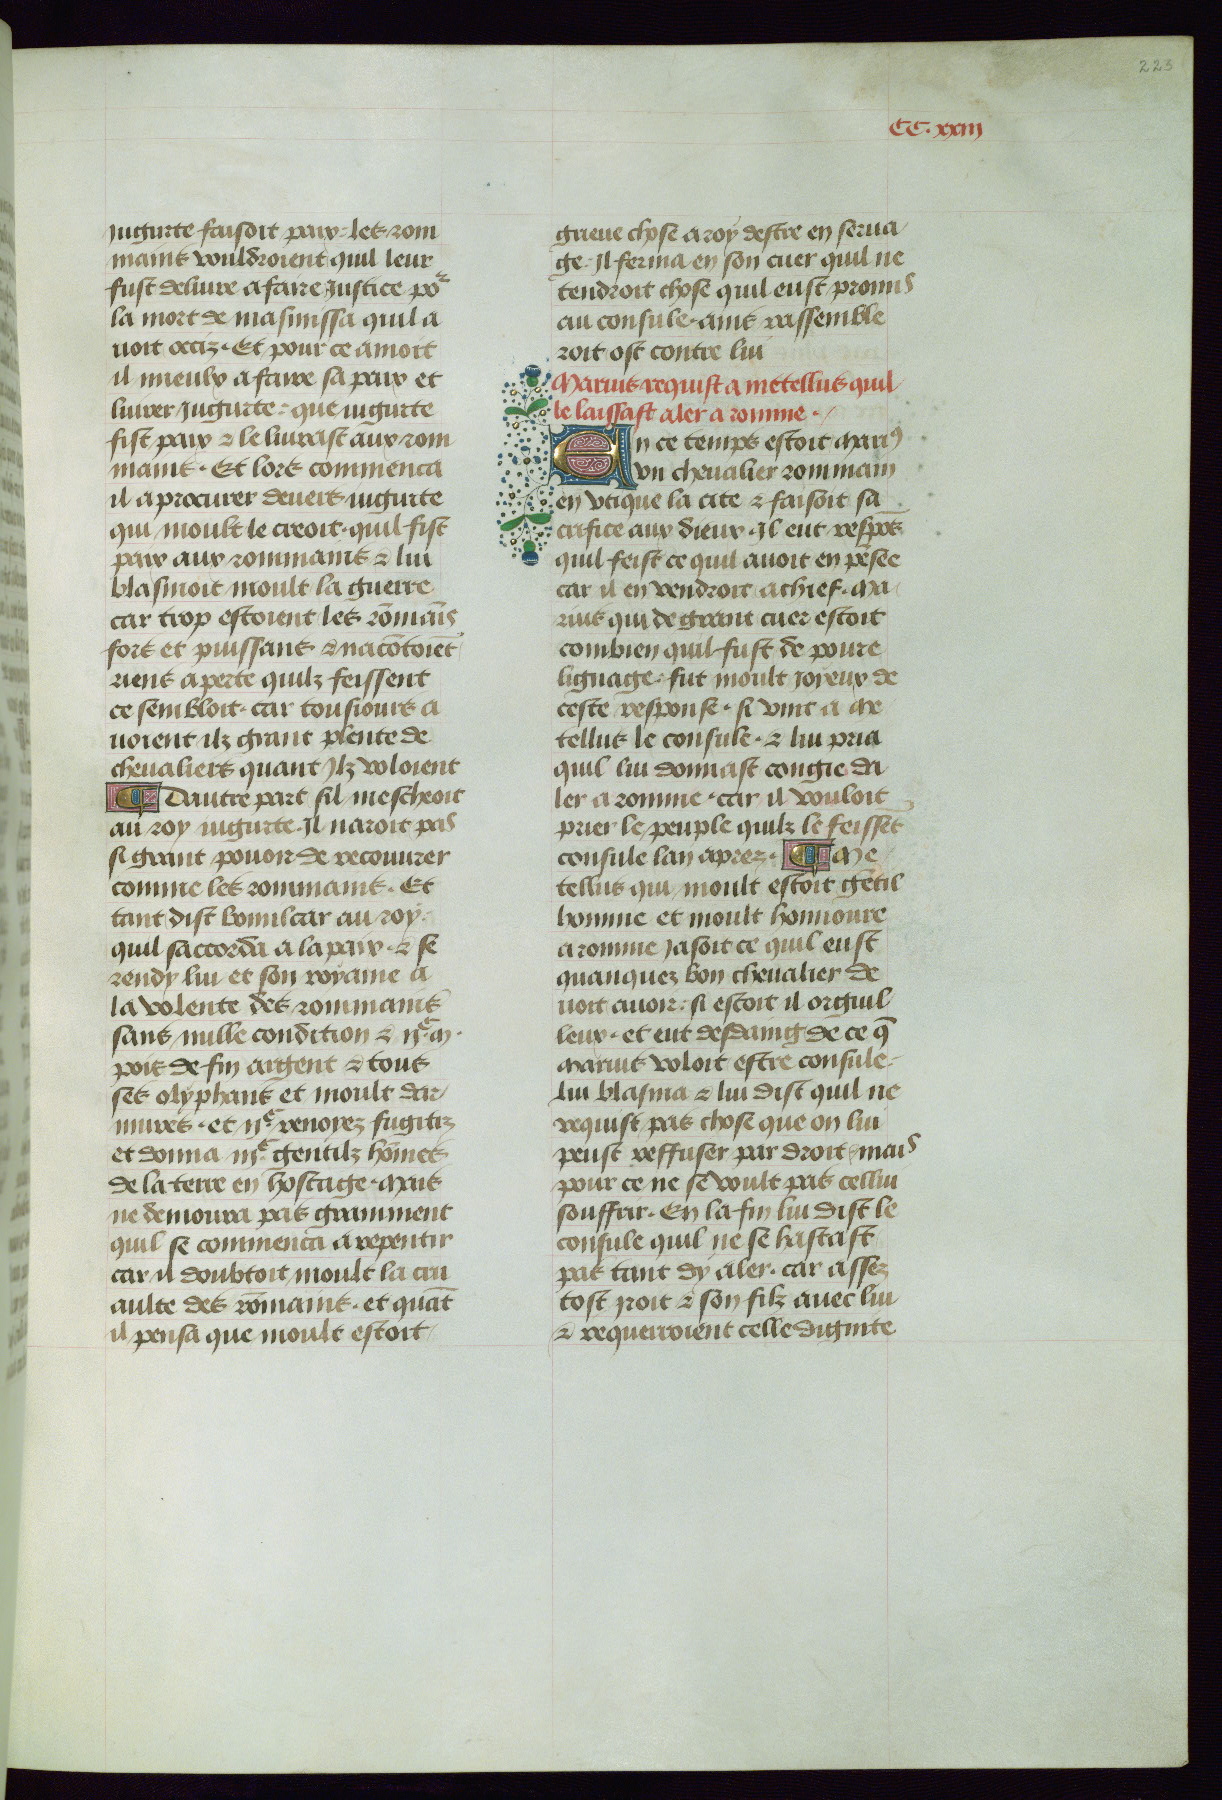 223
CC. xxiij
jugurte faisoit paix. les rom
mains vouldroient quil leur
fust deliure a faire justice po᷑
la mort de masinissa quil a
uoit occiz. Et pour ce amoit
il mieulx a faire sa paix et
liurer jugurte. que iugurte
fist paix ⁊ le liurast aux rom
mains. Et lors commenca
il a procurer deuers iugurte
qui moult le creoit. quil fist
paix aux rommains ⁊ lui
blasmoit moult la guerre
car trop estoient les rōmaīs
fors et puissans ⁊ nacōtoiēt
riens a perte quilz feissent
ce sembloit. car tousiours a
uoient ilz grant plente de
cheualiers quant jlz voloient
Dautre part sil mescheoit
au roy iugurte. Jl naroit pas
si grant pouoir de recouurer
comme les rommains. Et
tant dist bomilcar au roy.
quil saccorda a la paix. ⁊ se
rendy lui et son royaume a
la volente des rommains
sans nulle condition ⁊ ijᶜ. m.
pois de fin argent ⁊ tous
ses olyphans et moult dar
mures. et ijᶜ renoyez fugitiz
et donna iijᶜ gentilz hōmes
de la terre en hostage. Mais
ne demoura pas gramment
quil se commenca a repentir
car il doubtoit moult la cru
aulte des rōmains. et quāt
il pensa que moult estoit
grieue chose a roy destre en serua
ge. Jl ferma en son cuer quil ne
tendroit chose quil eust promis
au consule. ains rassemble
roit ost contre lui
Marius requist a metellus quil
le laissast aler a romme.
En ce temps estoit Mari⁹
vn cheualier rommain
en vtique la cite ⁊ faisoit sa
crifice aux dieux. Jl eut respōs
quil feist ce quil auoit en pēsee
car il en vendroit a chief. Ma
rius qui de grant cuer estoit
combien quil fust de poure
lignage. fut moult joyeux de
ceste response. si vint a Me
tellus le consule. ⁊ lui pria
quil lui donnast congie da
ler a romme. car il vouloit
prier le peuple quilz le feissēt
consule lan aprez. Me
tellus qui moult estoit gētil
homme et moult honnoure
a romme jasoit ce quil eust
quanquez bon cheualier de
uoit auoir. si estoit il orguil
leux. et eut desdaing de ce q̄
Marius voloit estre consule.
lui blasma ⁊ lui dist quil ne
requist pas chose que on lui
peust reffuser par droit. mais
pour ce ne se voult pas cellui
souffrir. En la fin lui dist le
consule quil ne se hastast
pas tant dy aler. car assez
tost jroit ⁊ son filz auec lui
⁊ requerroient celle dignite